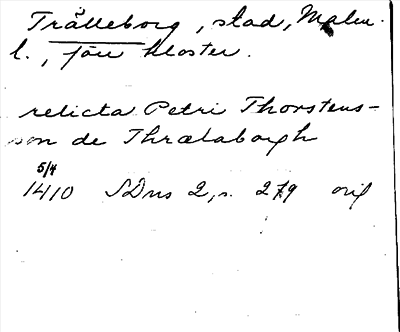 Trälleborg, stad, Malm.
l., förr kloster.
relicta Petri Thorstens-
son de Thrælaborgh
5/4
1410 SDns 2, s. 279 orig